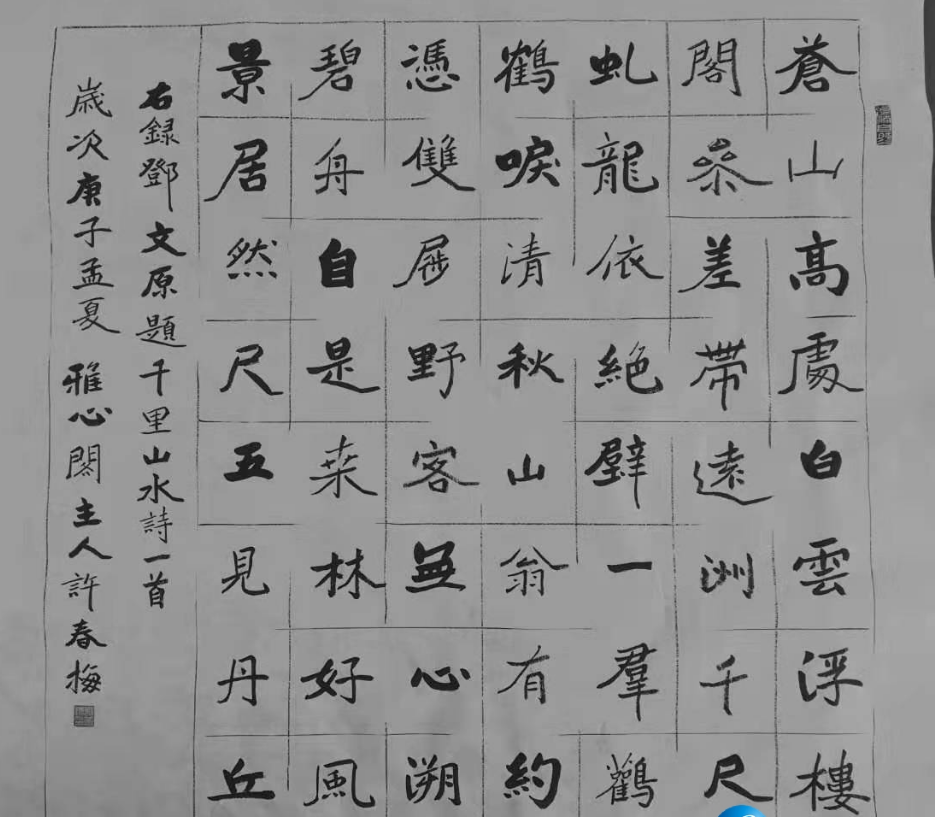 蒼山高處白雲浮樓
閣參差帶遠洲千尺
虬龍依絕壁一羣鸛
鶴唳清秋山翁有約
憑雙屐野客無心溯
碧舟自是桒林好風
景居然尺五見丹丘
右錄鄧文原題千里山水詩一首
歲次庚子孟夏 雅心閣主人許春梅